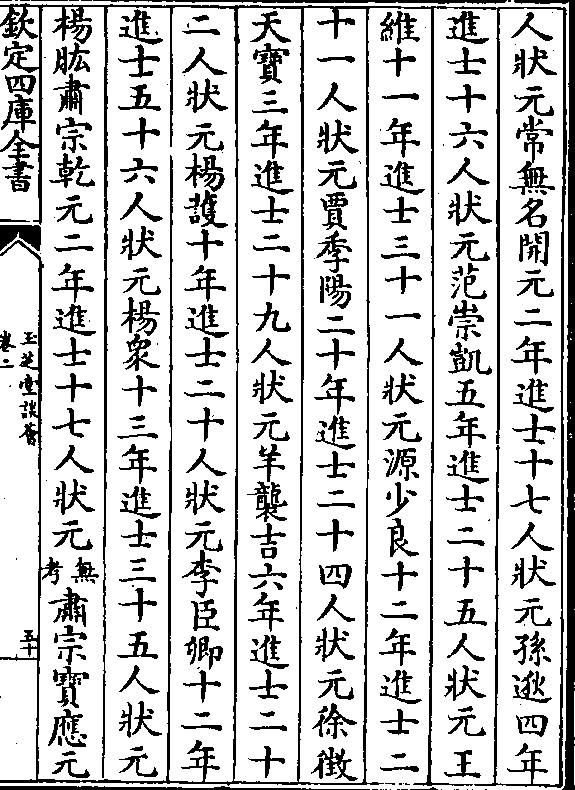 人狀元常無名開元二年進士十七人狀元孫逖四年
進士十六人狀元范崇凱五年進士二十五人狀元王
維十一年進士三十一人狀元源少良十二年進士二
十一人狀元賈季陽二十年進士二十四人狀元徐徵
天寶三年進士二十九人狀元羊襲吉六年進士二十
二人狀元楊護十年進士二十人狀元李臣卿十二年
進士五十六人狀元楊衆十三年進士三十五人狀元
楊肱肅宗乾元二年進士十七人狀元無考肅宗寶應元
欽定四庫全書
玉芝堂談薈
卷二
五十